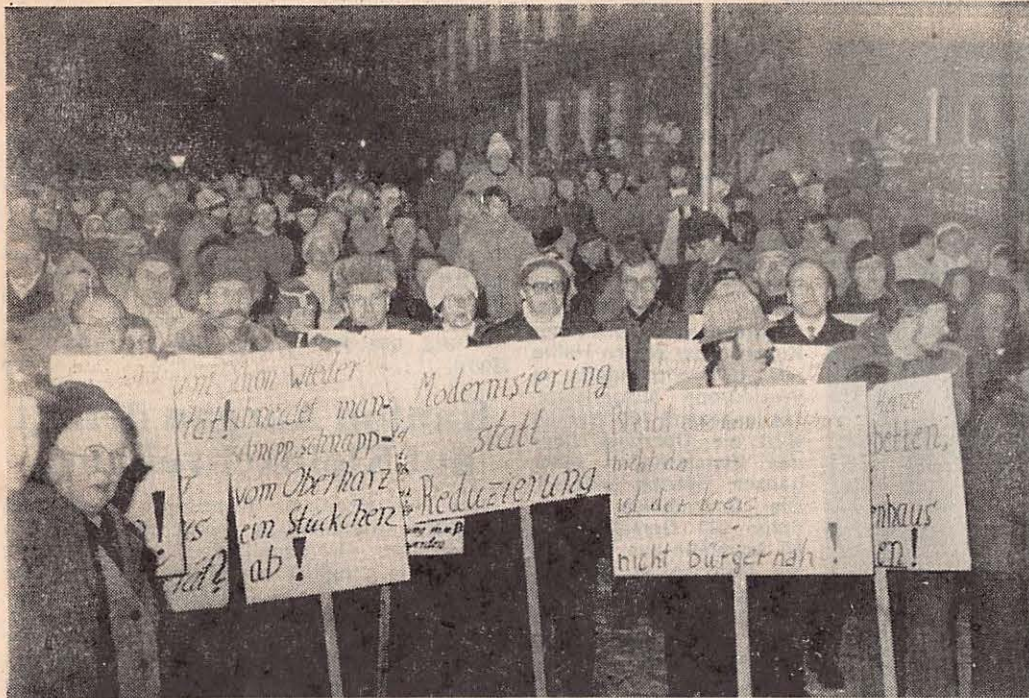 tat!
!
tat?
Schon wieder
schneidet man
schnipp, schnapp
vom Oberharz
ein Stückchen
ab!
Modernisierung
statt
Reduzierung
Bleibt das
nicht da
ist der Kreis
nicht bürgernah!
betten,
enhaus
en!